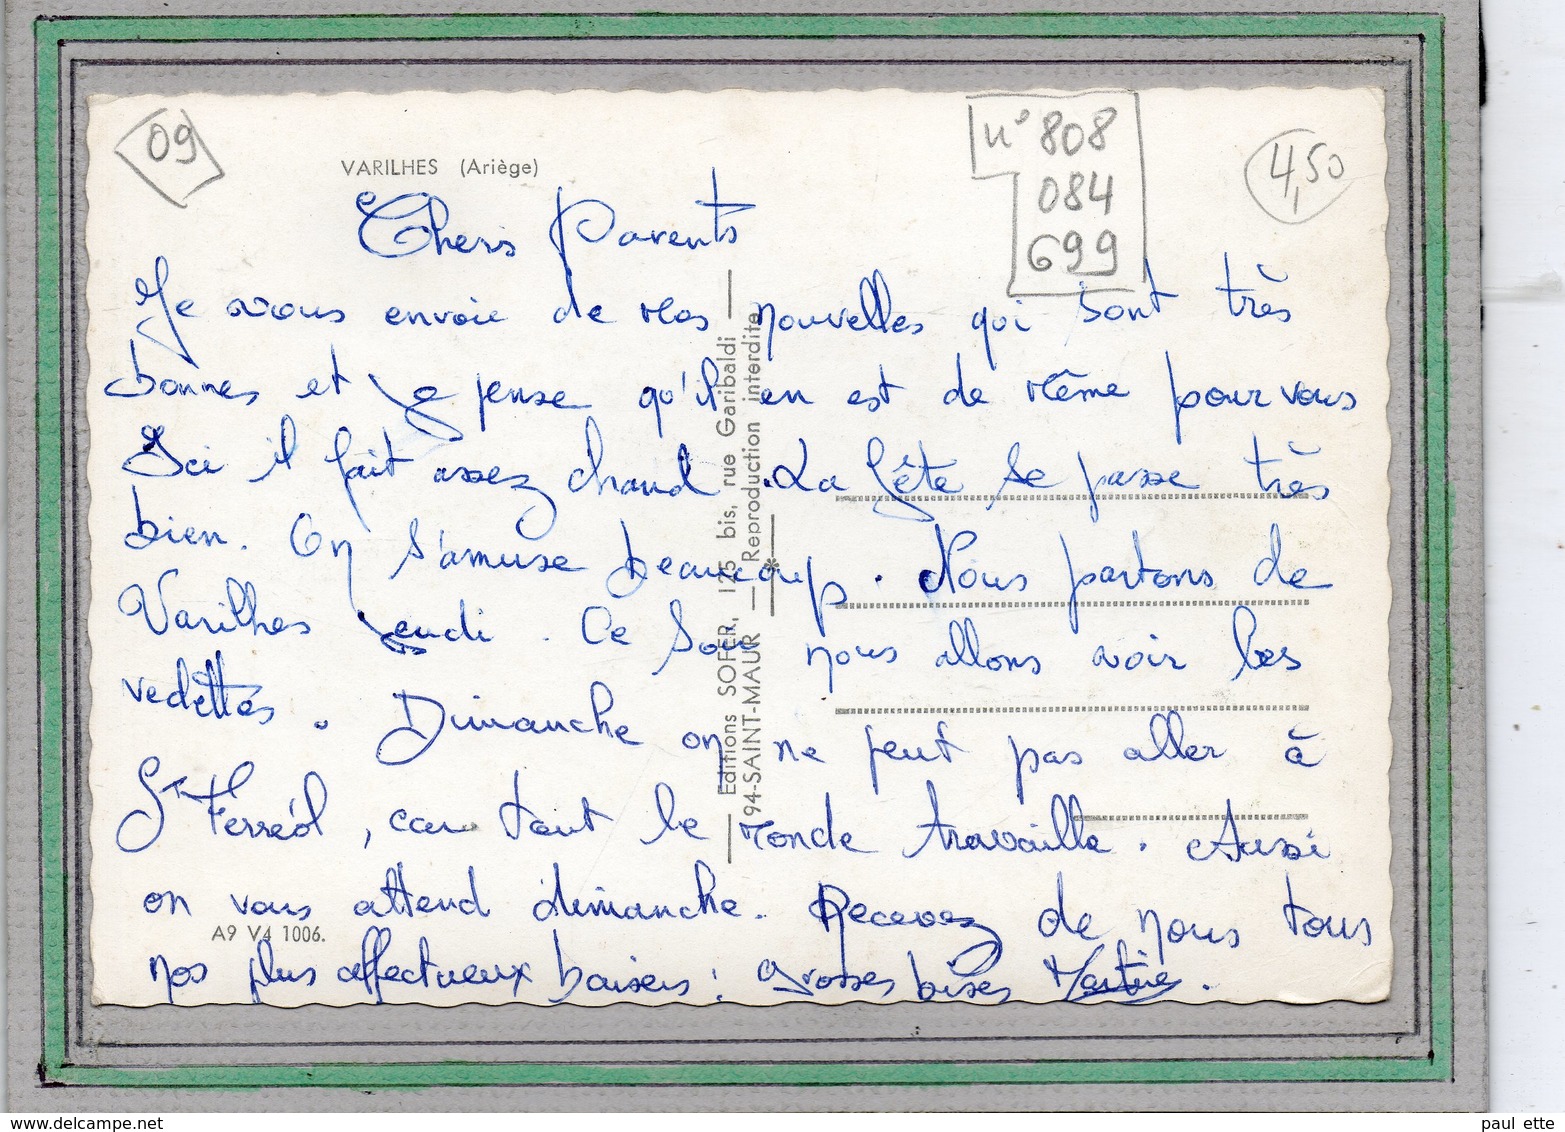 09
n° 808
084
699
4,50
VARILHES (Ariège)
Chers Parents
Je vous envoie de mes nouvelles qui sont très
bonnes et je pense qu'il en est de même pour vous
Ici il fait assez chaud. La fête se passe très
bien. On s'amuse beaucoup. Nous partons de
Varilhes jeudi. Ce soir nous allons voir les
vedettes. Dimanche on ne peut pas aller à
St Ferréol, car tout le monde travaille. Aussi
on vous attend dimanche. Recevez de nous tous
nos plus affectueux baisers. Grosses bises Martine.
A9 V4 1006.
Editions SOFER, 125 bis, rue Garibaldi
94-SAINT-MAUR — Reproduction interdite
www.delcampe.net
paul ette